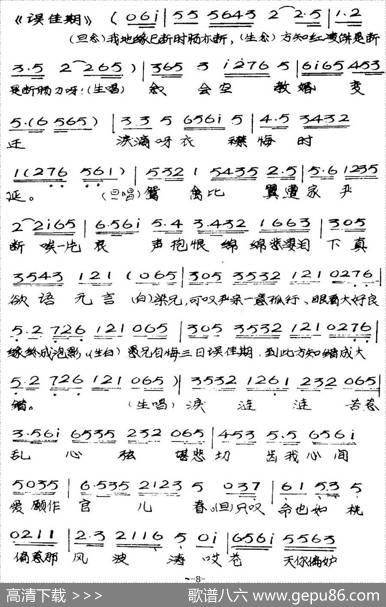 《误佳期》 ( 0 6 i | 5 5 5 6 4 3 2 2·5 | 1·2
(旦念)我地缘已断时肠亦断, (生念) 方知红
3·5 2 2 6 5 ) | 3 6 5 3 i 2 7 6 5 | 6 i 6 5 4 5 3 2
(生唱) 教 婚 变
5·( 6 5 6 5 ) | 3 3 5 6 5 6 i 5 | 4·5 3 4 3 2
泪滴呀衣 襟悔时
1 ( 2 7 6 5 6 1 ) | 5 3 2 1 5 4 3 5 2·5 | 5·6 1 2 3 5
延。 (旦唱) 鸳 鸯比 翼遭家尹
2 2 i 6 5 | 6·5 6 i 5·4 3·4 3 2 1 6 6 3 | 3 0 5
断 唉一片 痕 声抱恨 绵 绵 下真
3 5 4 3 1 2 1 ( 0 6 5 | 3 0 5 3 5 3 2 1 2 1 0 2 7 6
欲语无言 (白) 梁兄,可叹严亲一意孤行、眼看大好良
5·2 7 2 6 1 2 1 0 6 5 | 3 0 5 3 5 3 2 1 2 1 0 2 7 6
缘终成泡影, (生白) 愚兄自悔三日误佳期, 到此方知错成大
5·2 7 2 6 1 2 1 0 6 5 ) | 3 5 3 2 1 2 6 1 2 3 2 0 6 5
错。 (生唱) 泪 涟 涟 苦惹
3·5 6 i 6 5 3 5 2 3 2 0 6 5 | 4 5 3 5·5 6 5 6 i
乱 心 弦 堪悲切 我心间
5 0 3 5 | 6·5 3 5 2 1 2 3 5 0 3 7 | 6 1 5 3 5
爱 愿作 宫 儿 眷(旦)只叹 命也如 桃
0 2 1 1 | 2·3 2 1 1 6 5 0 i | 6 5 6 i 5 5 6 3
偏惹那 风 波 涛 哎 苍 天你偏妒
-8-
高清下载 >>>
歌谱八六 www.gepu86.com